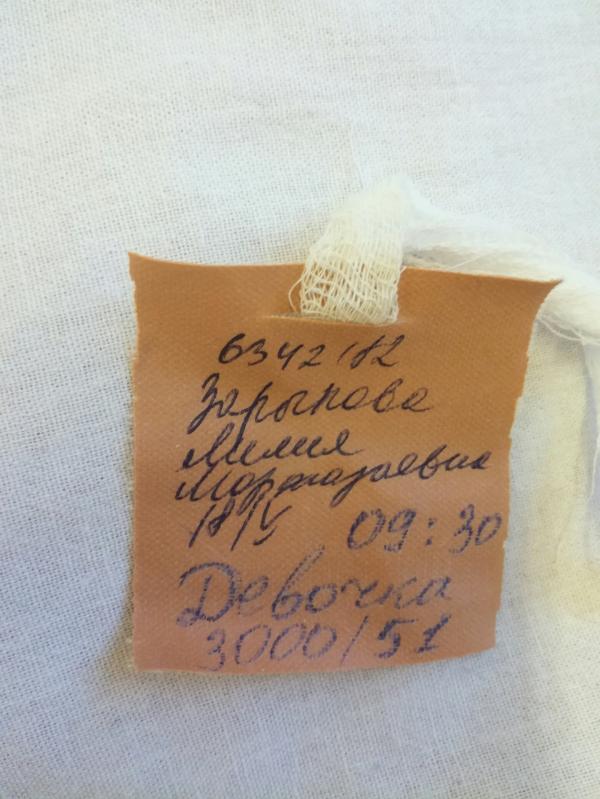 6342182
Зарыпова
Лилия
Мортазаевна
18/V 09:30
Девочка
3000/51